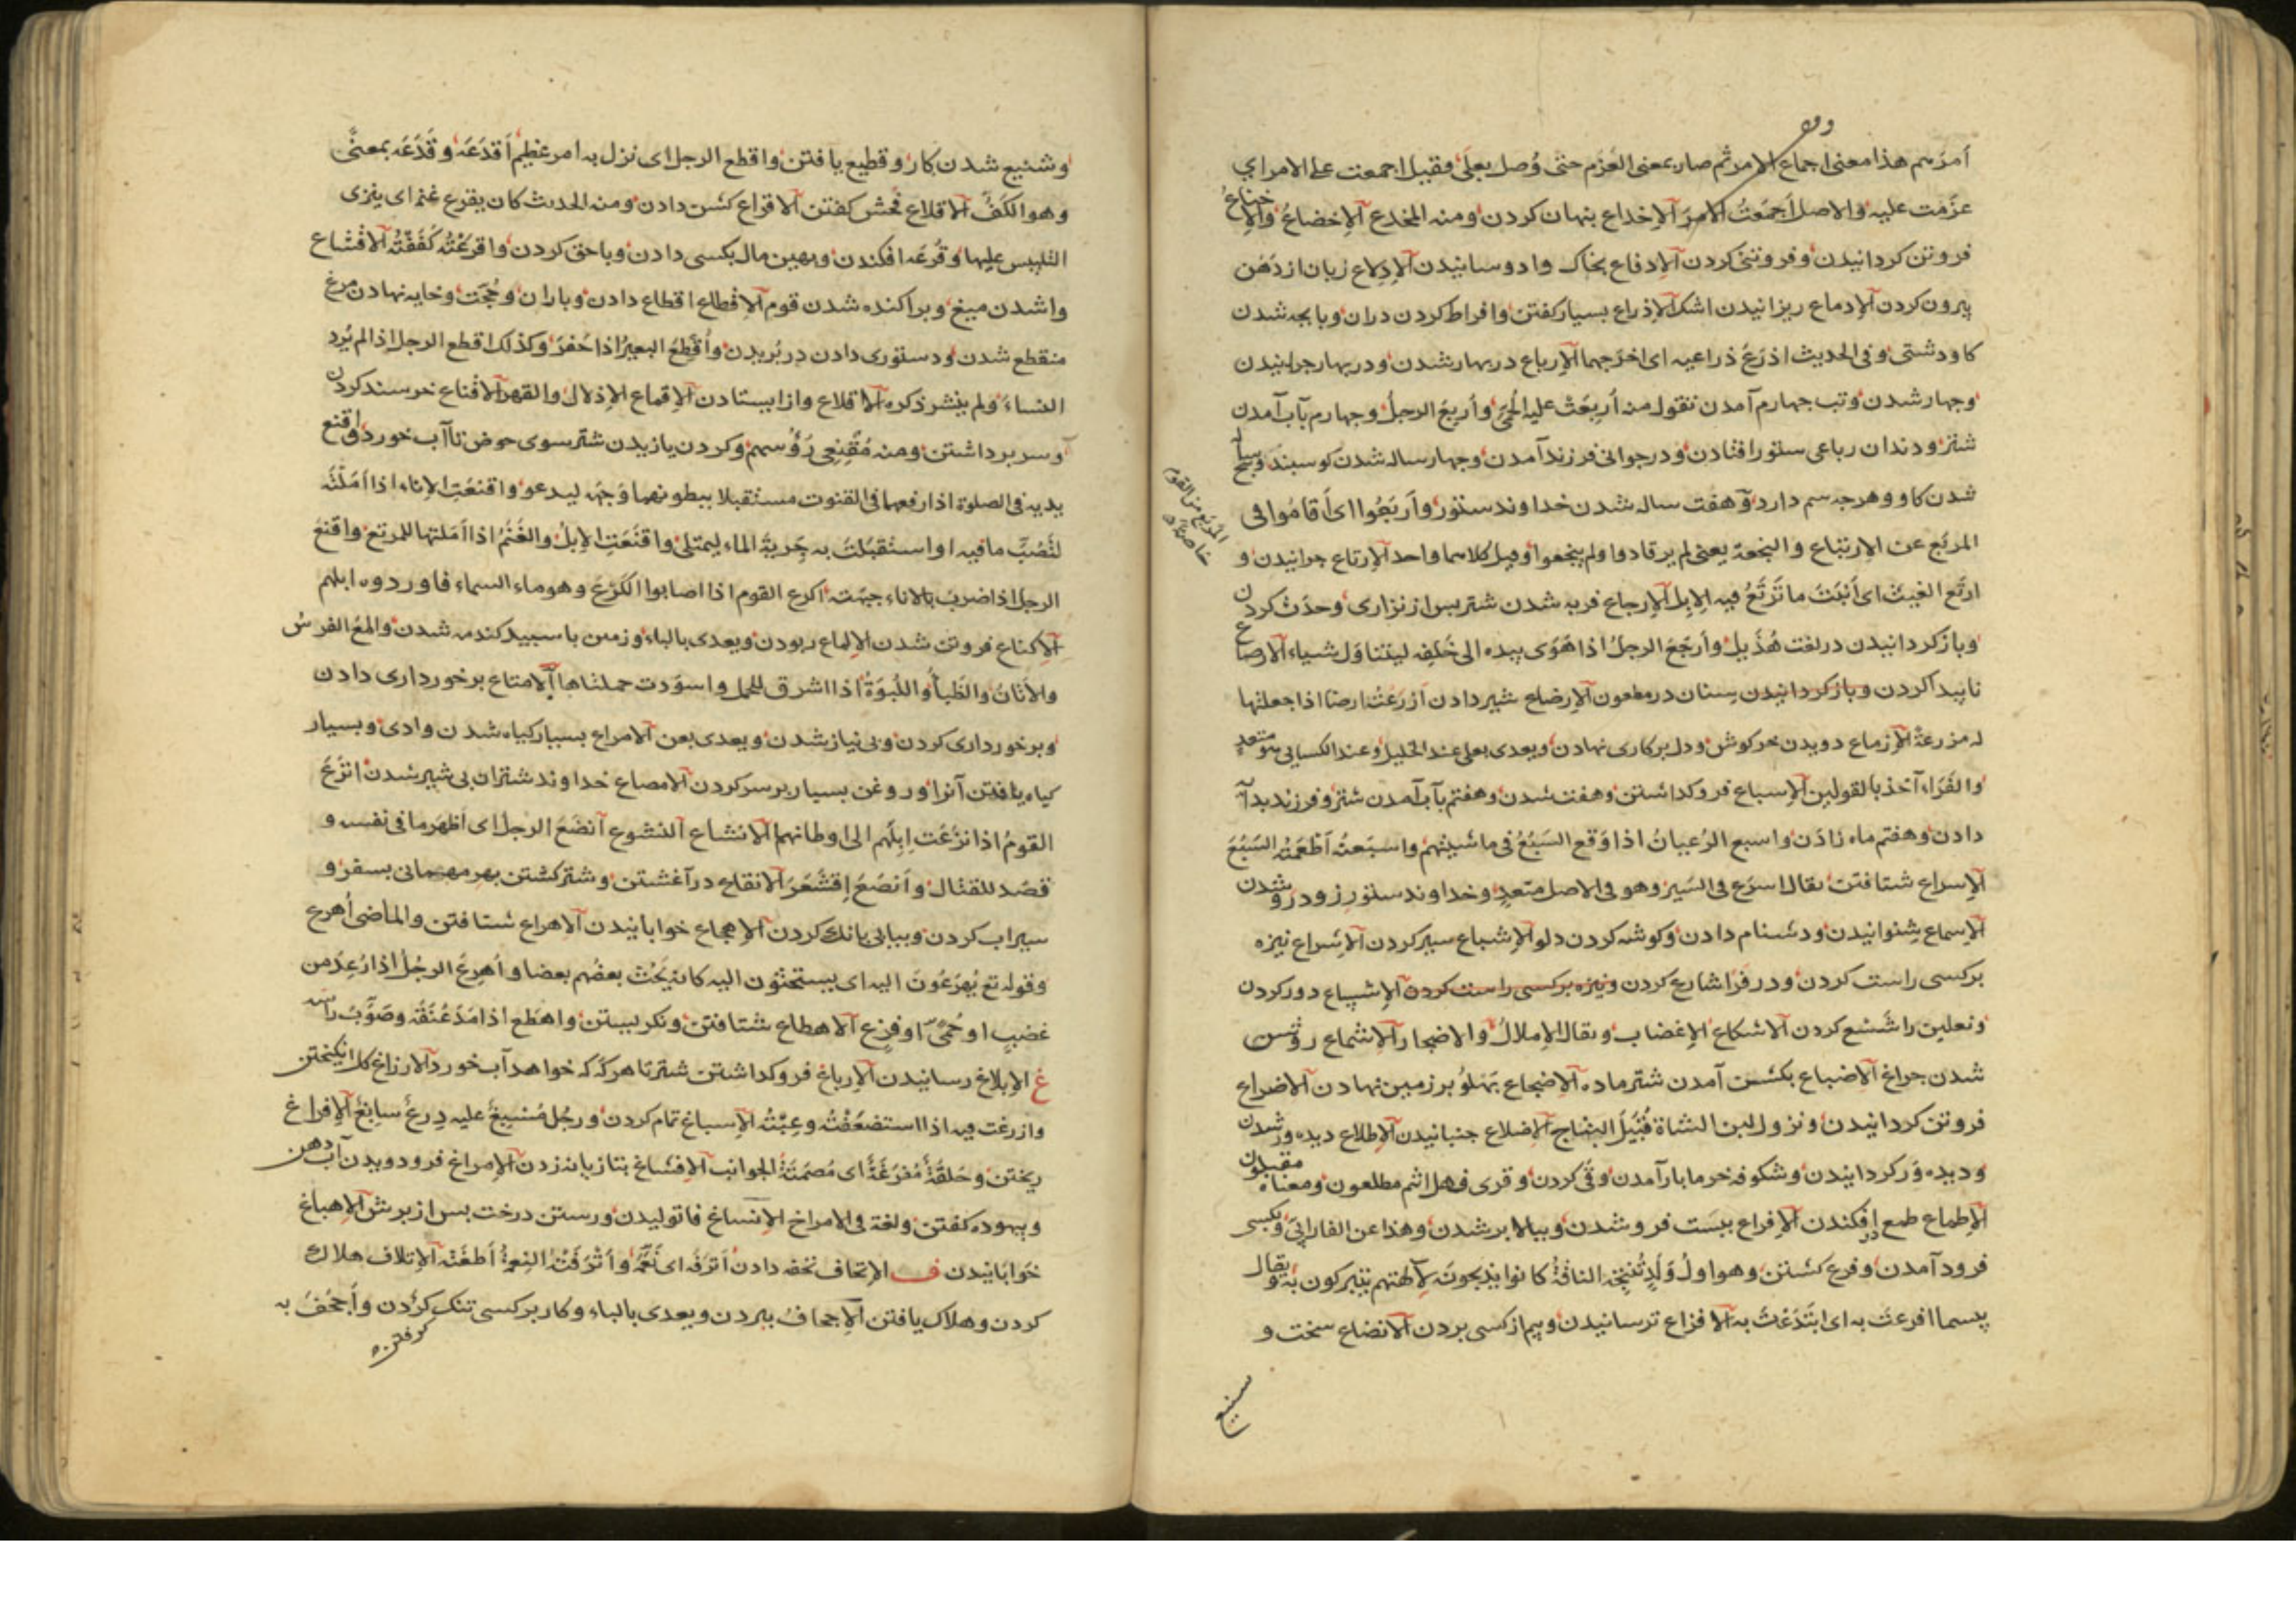 وقف
أمرهم هذا معنى اجماع الامر ثم صار بمعنى العَزم حتى وُصل بعلَى فقيل اجمعت على الامر اي
عزمت عليه والاصل أجمَعتُ الامرَ الاِخداع بنهان کردن ومنه المخدع الاِخضاعُ والاِخناعُ
فروتن کردانیدن وفروتنی کردن الاِدقاع بخاک وادوسانیدن الاِدلاع زبان از دَهَن
بیرون کردن الاِدماع ریزانیدن اشک الاِذراع بسیار کفتن وافراط کردن دران وبا بچه شدن
کاو دشتی وفی الحدیث اذرَعَ ذراعیه ای اخرَجهما الاِرباع در بهار شدن ودر بهار چرانیدن
وچهار شدن وتب چهارم آمدن تقول منه أُربِعَت علیه الحُمّی وأربعَ الرجلُ وچهارم بآب آمدن
شتر ودندان رباعی ستور افتادن ودر جوانی فرزند آمدن وچهار ساله شدن کوسبند وپنج ساله
شدن کاو وهرچه سم دارد وهفت ساله شدن خداوند ستور وأربَعُوا ای أقامُوا فی
المربَع عن الارتباع والنجعة یعنی لم یرتادوا ولم ینجعوا وقیل کلاهما واحد الاِرتاع چرانیدن و
ارتَع الغیثُ ای أنبَتَ ما تَرتَعُ فیه الاِبل الاِرجاع فربه شدن شتر بس از نزاری وحدَث کردن
وباز کردانیدن در لغت هُذَیل وأرجَعَ الرجلُ اذا هَوَی بیده الی خَلفِه لیتناوَل شیاء الارصاع
ناپیدا کردن وباز کردانیدن سنان در مطعون الاِرضاع شیر دادن أزرَعتُ ارضا اذا جعلتها
له مزرعة الاِزماع دویدن خرکوش ودل بر کاری نهادن ویعدی بعلی عند الخلیل وعند الکسایی هو متعدٍ
والفَرّاء آخذ بالقولین الاِسباع فروکداشتن وهفت شدن وهفتم بآب آمدن شتر وفرزند بدایه
دادن وهفتم ماه زادن واسبع الرُعیانُ اذا وَقَع السَبُعُ فی ماشیتهم واسبَعتُه أطعَمتُه السَبُعَ
الاِسراع شتافتن یقال اسرَع فی السَیر وهو فی الاصل متعدٍ وخداوند ستور زود رو شدن
الاِسماع شنوانیدن ودشنام دادن وکوشه کردن دلو الاِشباع سیر کردن الاِشراع نیزه
بر کسی راست کردن ودر فرا شارع کردن ونیزه بر کسی راست کردن الاِشساع دور کردن
ونعلین را شَسع کردن الاشکاع الاِغضاب ویقال الاِملالُ والاضجار الاِشماع روشن
شدن چراغ الاِضباع بکشن آمدن شتر ماده الاِضجاع بَهلُو بر زمین نهادن الاضراع
فروتن کردانیدن ونزول لبن الشاة قُبَیلَ النِتاج الاِضلاع جنبانیدن الاِطلاع دیده ور شدن
ودیده وَر کردانیدن وشکوفه خرما بار آمدن وقی کردن وقری فهل انتم مطلعون ومعناه مقبلون
الاِطماع طمع در افکندن الاِفراع ببَست فرو شدن وببالا بر شدن وهذا عن الفارابی وبکسی
فرود آمدن وفرع کشتن وهو اولُ وَلَدٍ تُنتِجُه الناقةُ کانوا یذبحونَه لآلهتهم یتبرکون به ویقال
بیسما افرعتَ به ای ابتَدَءتَ به الافزاع ترسانیدن وبیم از کسی بردن الانضاع سخت و
شنیع
المربع من القوم
خاصة
وشنیع شدن کار وقطیع یافتن واقطع الرجل ای نزل به امر عظیم أقدَعَه وقَدَعَه بمعنًی
وهو الکَفّ الاِقلاع فُحش کفتن الاقراع کشن دادن ومنه الحدیث کان یقرع غنم ای ینزی
التلبیس علیها وقُرعَه افکندن وبهین مال بکسی دادن وبا حق کردن واقرَعتُه کفَفتُه الاقشاع
واشدن میغ وبراکنده شدن قوم الاِقطاع اقطاع دادن وباران وحُجّت وخایه نهادن مرغ
منقطع شدن ودستوری دادن در بُریدن وأُقطِعَ البعیرُ اذا حَفرَ وکذلک اقطع الرجل اذا لم یُرِد
النساءَ ولم ینشر ذکره الاقلاع واز ایستادن الاِقماع الاِذلال والقهر الاقناع خرسند کردن
وسر برداشتن ومنه مُقنِعِی رَؤُسهم وکردن یازیدن شتر سوی حوض تا آب خورد واقنع
یدیه فی الصلوة اذا رفعهما فی القنوت مستقبلا ببطونهما وَجهَه لیدعو واقنعَت الاِناء اذا امَلتَه
لتَصُبَّ ما فیه او استقبَلتَ به جِریة الماء لیمتلئ واقنَعَتِ الاِبلُ والغَنَمُ اذا امَلتها للمرتع واقنعَ
الرجل اذا ضربَ بالاناء جبهَته اکرع القوم اذا اصابوا الکَرَعَ وهو ماء السماء فاوردوه ابلهم
الاِکناع فروتن شدن الاِلماع ربودن ویعدی بالباء وزمین با سبید کندمه شدن والمعَ الفرسُ
والأتانُ والظَبأُ واللَبُوَةُ اذا اشرق للحمل واسوَدت حلمتاها الاِمتاع برخورداری دادن
وبرخورداری کردن وبی نیاز شدن ویعدی بعن الامراع بسیار کیاه شدن وادی وبسیار
کیاه یافتن آنرا وروغن بسیار بر سر کردن الامصاع خداوند شتران بی شیر شدن انزَعَ
القومُ اذا نزَعَت اِبِلُهم الی اوطانهم الانشاع النشوع أنضَعَ الرجل ای اظهَر ما فی نفسه و
قصَد للقتال وأنصَعَ اِقشَعَرَ الانقاع در آغشتن وشتر کشتن بهر مهمانی بسفر و
سیراب کردن وبیابی بانک کردن الاِهجاع خوابانیدن الاهراع شتافتن والماضی اُهرع
وقوله تع یُهرَعُونَ الیه ای یستحثّون الیه کانه یَحُثّ بعضُهم بعضا واُهرِعَ الرجُلُ اذا اُرعِدَ من
غضبٍ او حُمّیً او فزعٍ الاهطاع شتافتن ونکریستن واهطَع اذا مَدَّ عُنَقَه وصَوَّبَ راسه
غ الاِبلاغ رسانیدن الاِرباغ فروکداشتن شتر تا هرکه که خواهد آب خورد الارزاغ کل انکیختن
وازرغت فیه اذا استضعَفتُه وعِبتُه الاِسباغ تمام کردن ورجُل مُسبِغ علیه دِرعٌ سابِغٌ الاِفراغ
ریختن وحَلقَةٌ مُفرَغَةٌ ای مُصمَتَةُ الجوانب الاِفشاغ بتازیانه زدن الاِمراغ فرو دویدن آب دهن
وبیهوده کفتن ولغة فی الامراخ الاِنساغ فاتولیدن ورستن درخت بس از برش الاِهباغ
خوابانیدن ف الاِتحاف تحفه دادن أترَفَه ای نَعَّمَه وأترَفَتهُ النِعمةُ أطغَته الاِتلاف هلاک
کردن وهلاک یافتن الاِجحافُ ببردن ویعدی بالباء وکار بر کسی تنک کردن وأجحَفَ به
کرفتن